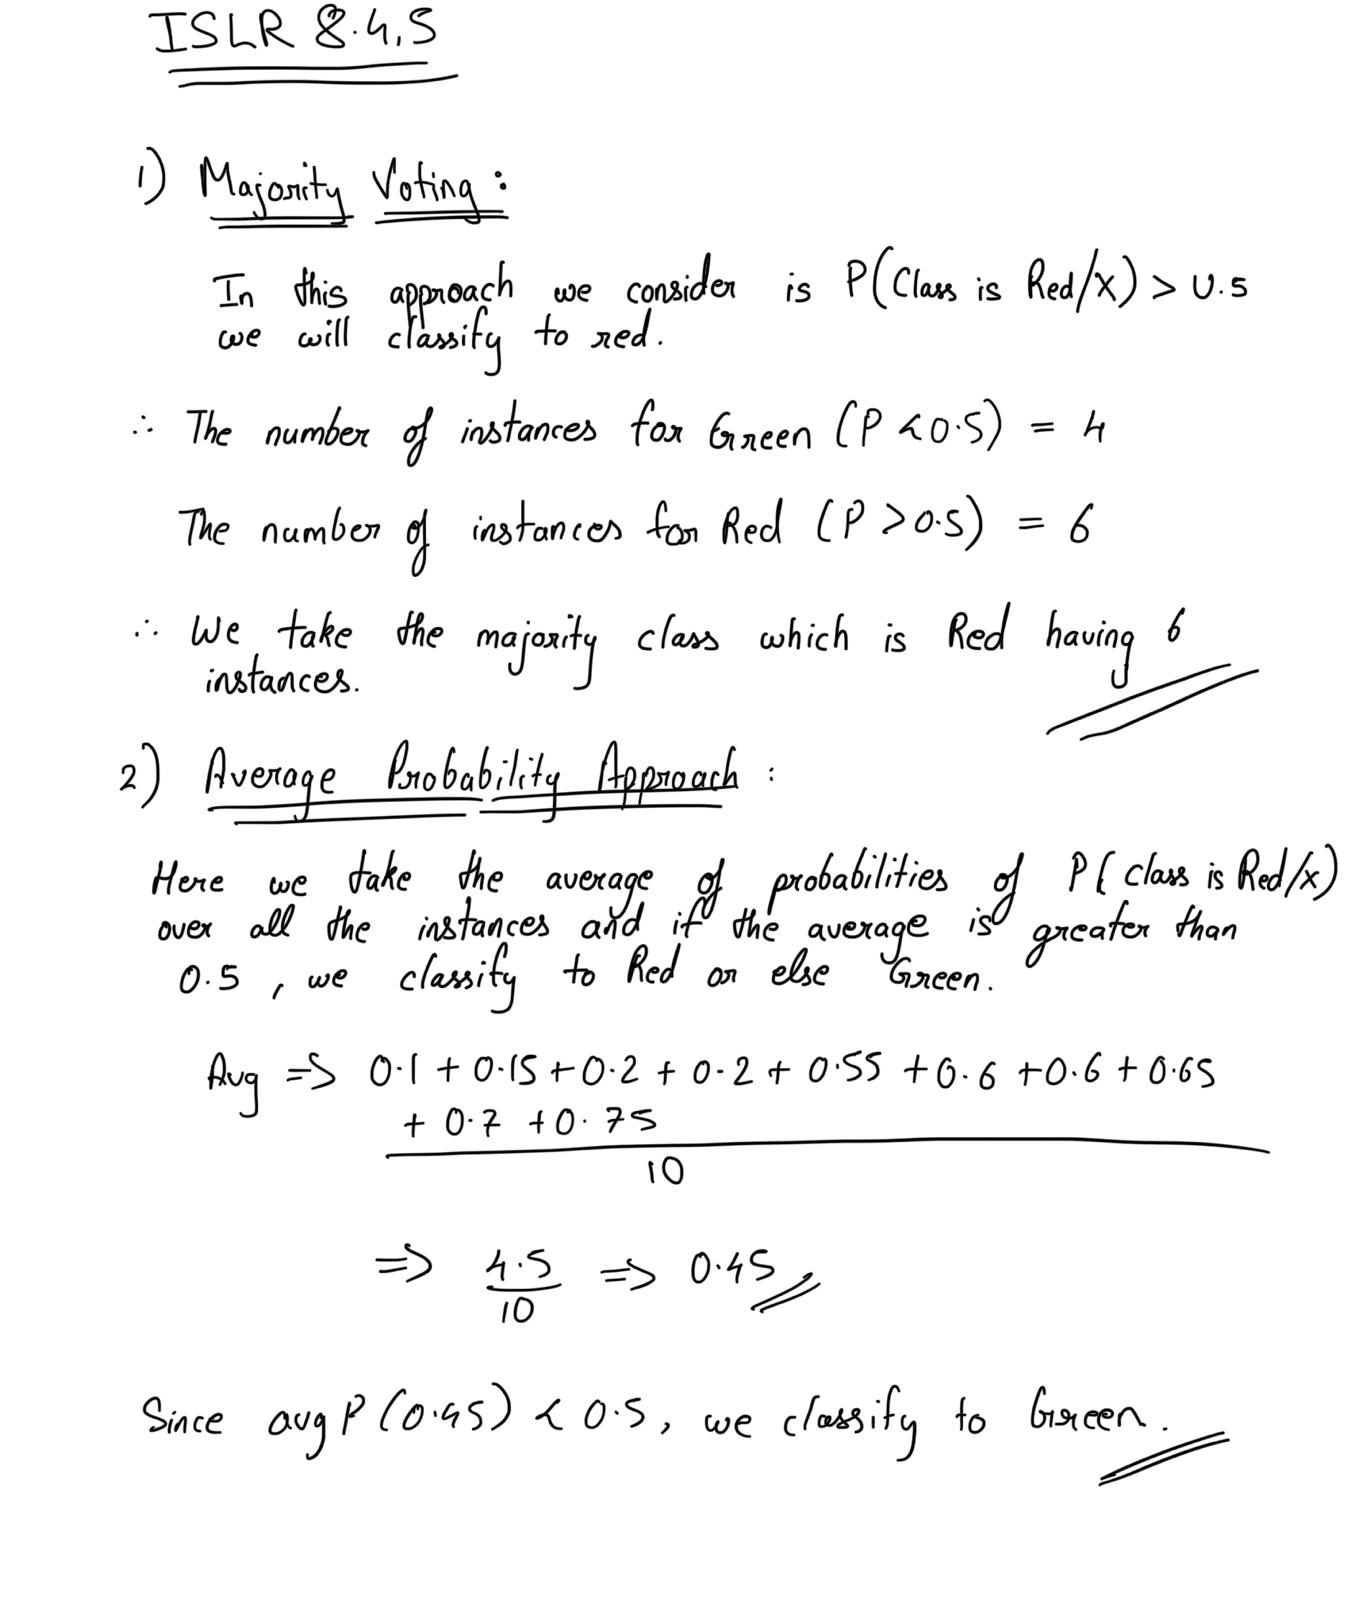 ISLR 8.4.5
1) Majority Voting :
In this approach we consider is P(Class is Red/X) > 0.5
we will classify to red.
∴ The number of instances for Green (P < 0.5) = 4
The number of instances for Red (P > 0.5) = 6
∴ We take the majority class which is Red having 6
instances.
2) Average Probability Approach :
Here we take the average of probabilities of P(class is Red/x)
over all the instances and if the average is greater than
0.5 , we classify to Red or else Green.
Avg => 0.1 + 0.15 + 0.2 + 0.2 + 0.55 + 0.6 + 0.6 + 0.65
+ 0.7 + 0.75
10
=> 4.5 => 0.45
10
Since avg P (0.45) < 0.5, we classify to Green.